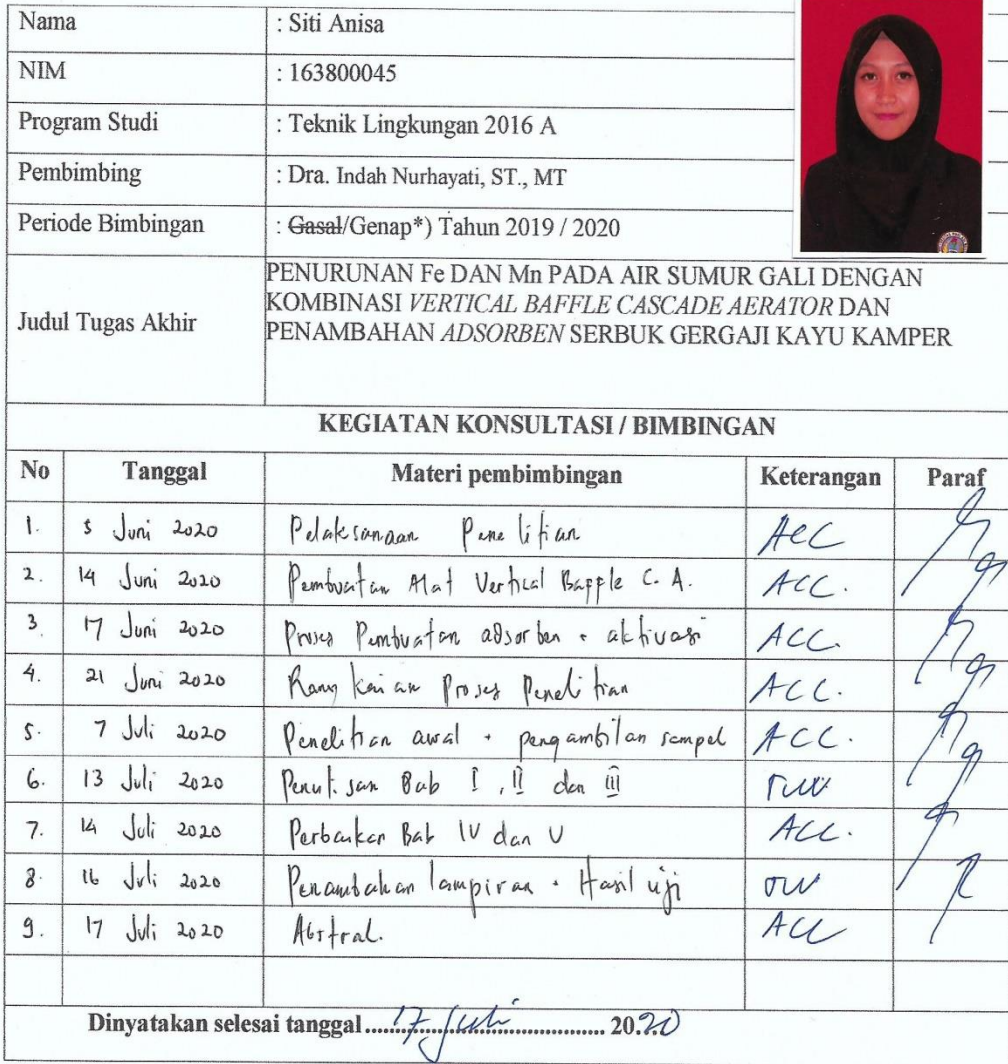 Nama : Siti Anisa
NIM : 163800045
Program Studi : Teknik Lingkungan 2016 A
Pembimbing : Dra. Indah Nurhayati, ST., MT
Periode Bimbingan : Gasal/Genap*) Tahun 2019 / 2020
Judul Tugas Akhir
PENURUNAN Fe DAN Mn PADA AIR SUMUR GALI DENGAN
KOMBINASI VERTICAL BAFFLE CASCADE AERATOR DAN
PENAMBAHAN ADSORBEN SERBUK GERGAJI KAYU KAMPER
KEGIATAN KONSULTASI / BIMBINGAN
No Tanggal Materi pembimbingan Keterangan Paraf
1. 5 Juni 2020 Pelaksanaan Penelitian ACC
2. 14 Juni 2020 Pembuatan Alat Vertical Baffle C. A. ACC.
3. 17 Juni 2020 Proses Pembuatan adsorben + aktivasi ACC.
4. 21 Juni 2020 Rangkaian Proses Penelitian ACC.
5. 7 Juli 2020 Penelitian awal + pengambilan sampel ACC.
6. 13 Juli 2020 Penulisan Bab I, II dan III
7. 14 Juli 2020 Perbaikan Bab IV dan V ACC.
8. 16 Juli 2020 Penambahan lampiran + Hasil uji
9. 17 Juli 2020 Abstrak. ACC
Dinyatakan selesai tanggal 17 Juli 2020